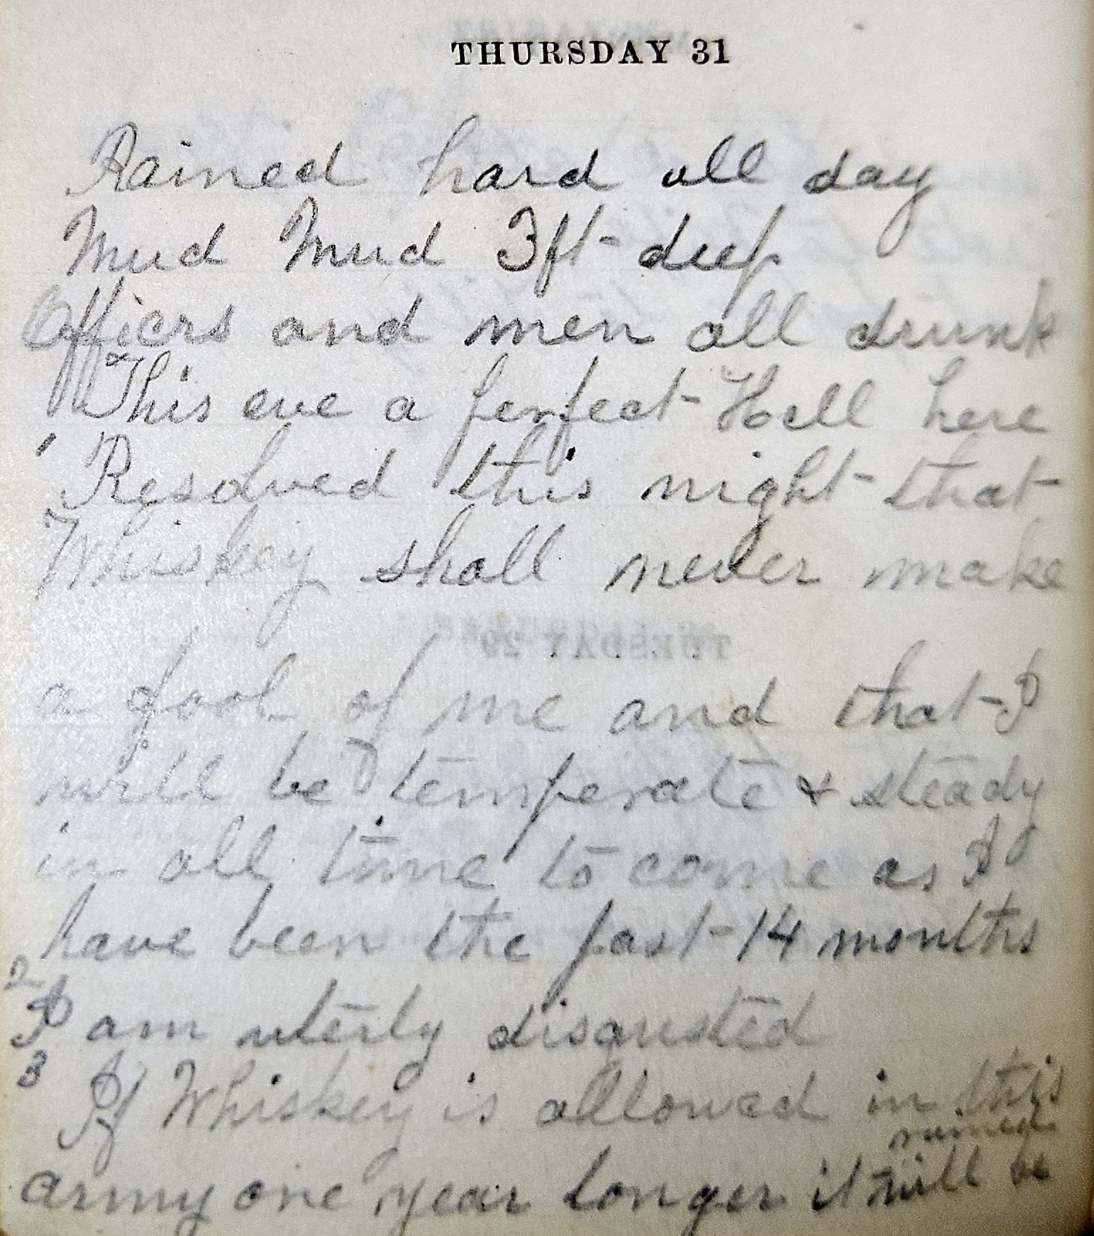 THURSDAY 31
Rained hard all day
Mud Mud 3ft deep
Officers and men all drunk
This eve a perfect Hell here
1 Resolved this night that
Whiskey shall never make
a fool of me and that I
will be temperate & steady
in all time to come as I
have been the past 14 months
2
I am uterly disgusted
3 If Whiskey is allowed in this
ruined
army one year longer it will be